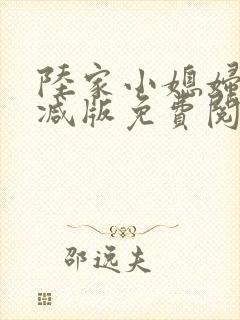 陸家小媳婦
減版免費閱
邵逸夫